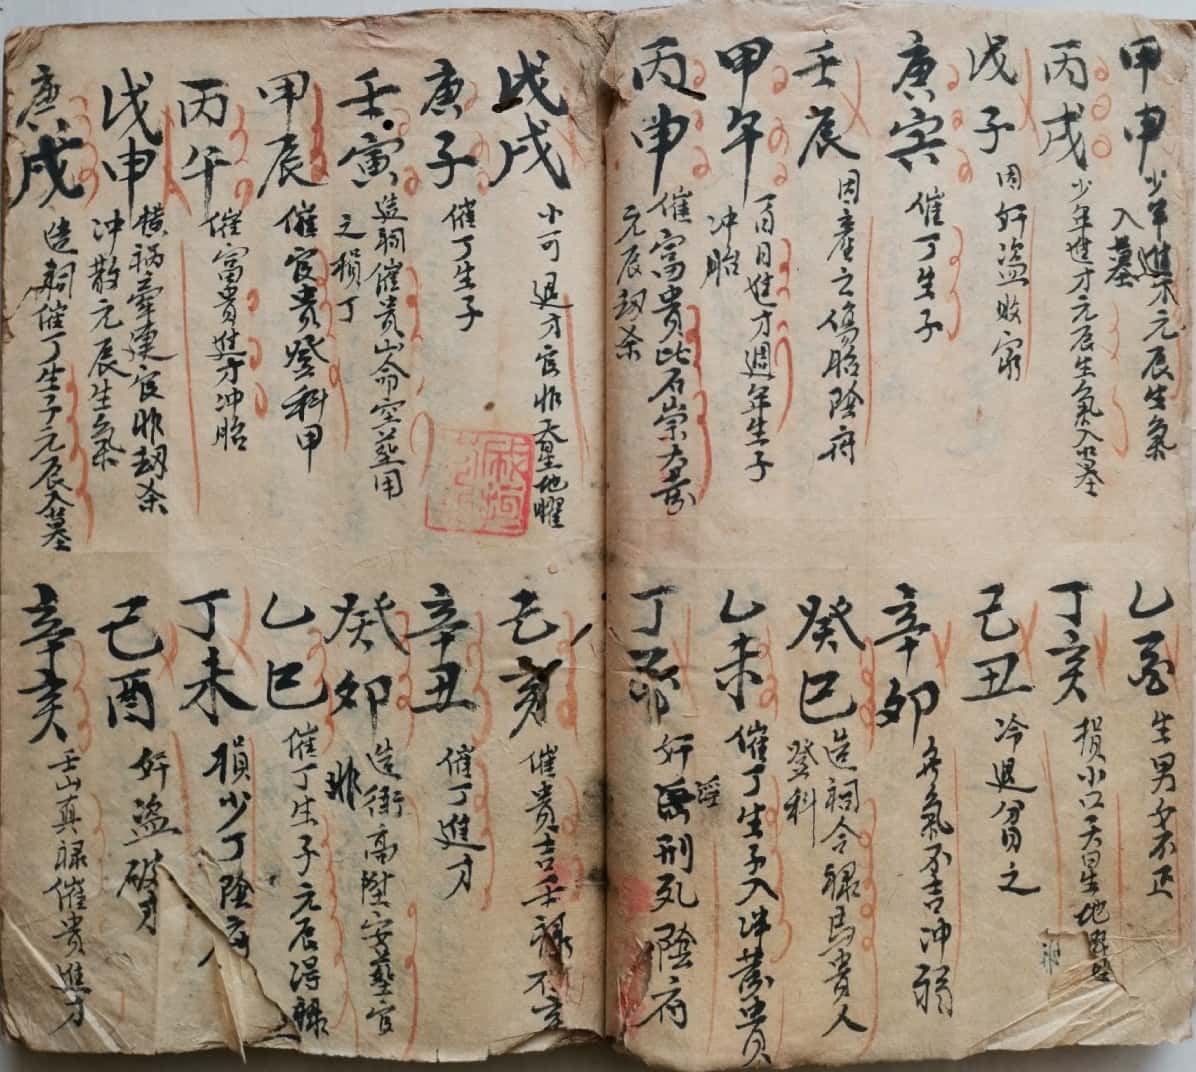 甲申
少年進才元辰生氣
入墓
乙酉
生男女不正
丙戌
少年進才元辰生氣入墓
丁亥
損小口天星地曜
戊子
因奸盜敗窮
己丑
冷退分月之
庚寅
催丁生子
辛卯
氣不吉冲禍
壬辰
因產之傷胎陰府
癸巳
造祠合祿馬貴人
登科
甲午
百日進才週年生子
冲胎
乙未
催丁生子入
貴
丙申
催富貴此石崇
元辰刼杀
丁
奸
淫
刑死陰府
戊戌
小可退才官非天星地曜
己亥
催貴吉壬祿不
庚子
催丁生子
辛丑
催丁進才
壬寅
造祠催貴山命空莖用
之損丁
癸卯
造衙高陞安葬官
非
甲辰
催官貴登科甲
乙巳
催丁生子元辰得祿
丙午
催富貴進才冲胎
丁未
損少丁陰府
戊申
橫禍牽連官非刼杀
冲散元辰生氣
己酉
奸盜破才
庚戌
造祠催丁生子元辰入墓
辛亥
壬山真祿催貴進才